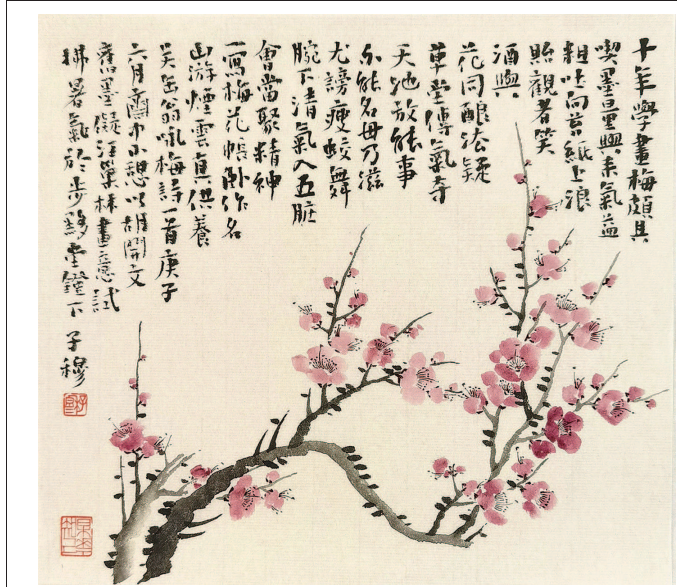 十年學畫梅頗具
喫墨量興來氣益
粗吐向苔紙上浪
貽觀者笑
酒與
花同釀法疑
草聖傳氣奪
天池放能事
不能名毋乃滋
尤謗瘦蛟舞
腕下清氣入五脏
會當聚精神
一寫梅花帳卧作名
山游煙雲真供養
吳缶翁咏梅詩一首庚子
六月雨中小憩以胡開文
舊墨儗汪巢林畫意試
拂暑氣於步黟堂鐙下 子穆